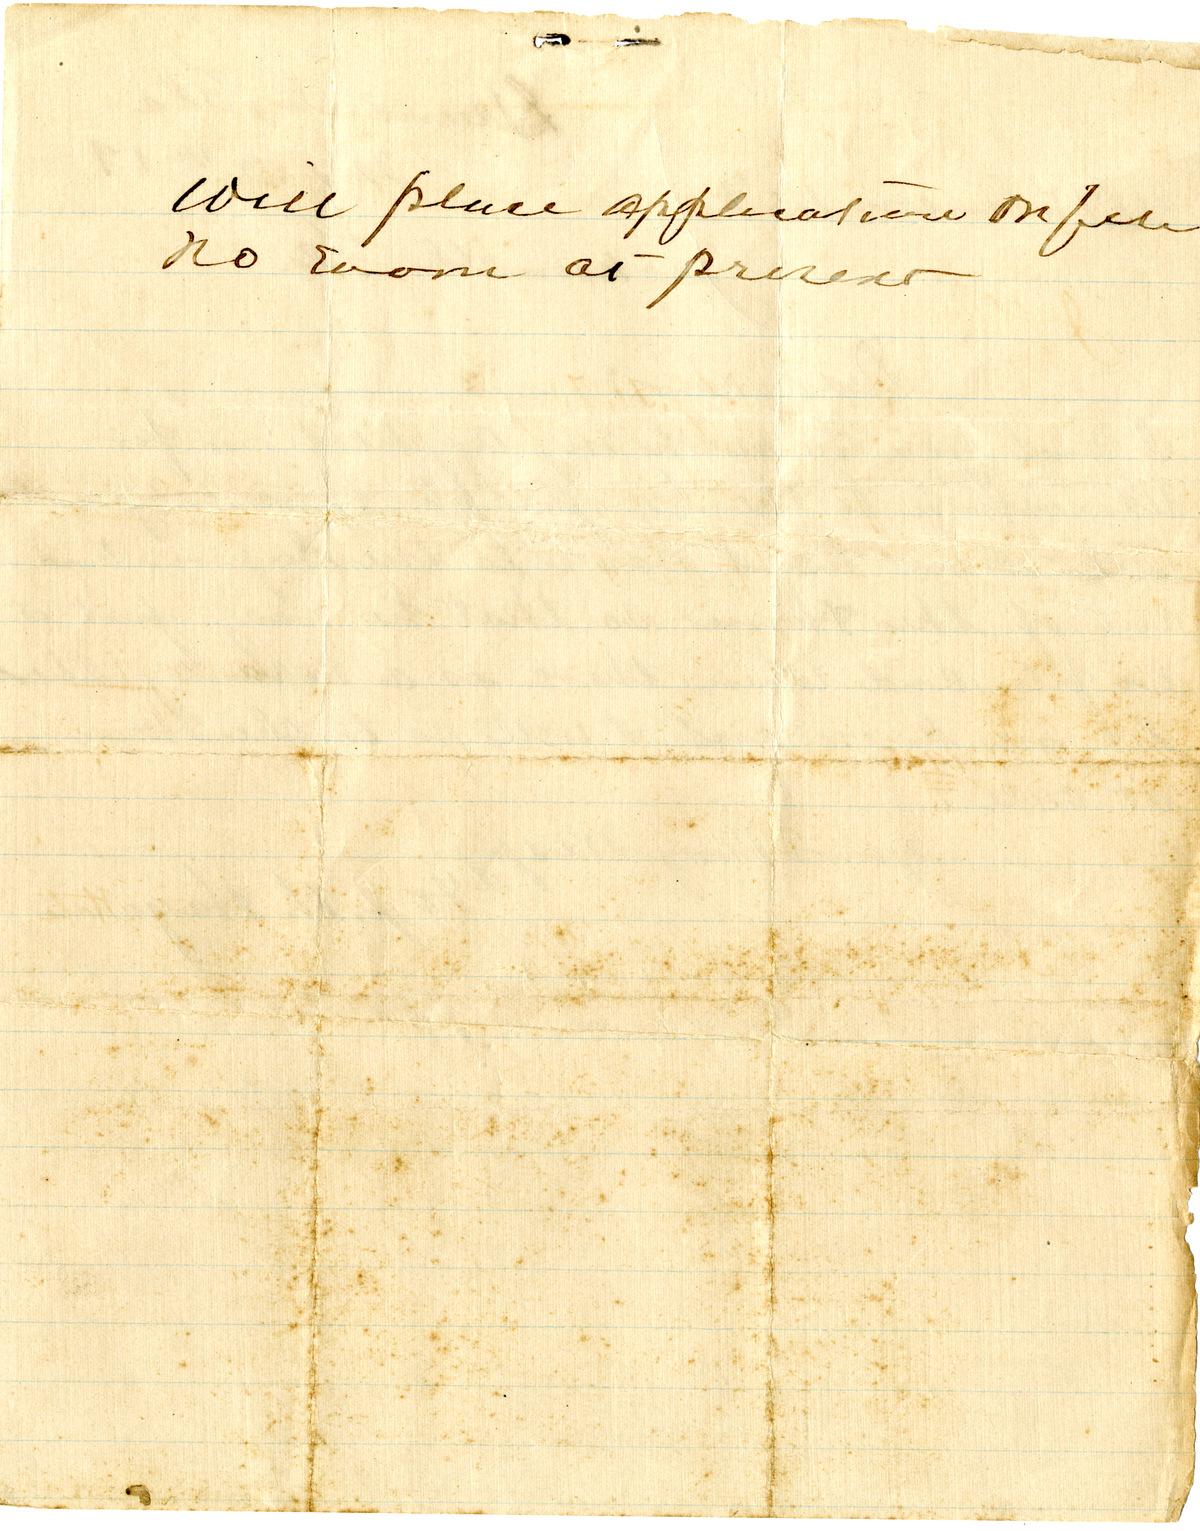 Will place application on file
No room at present